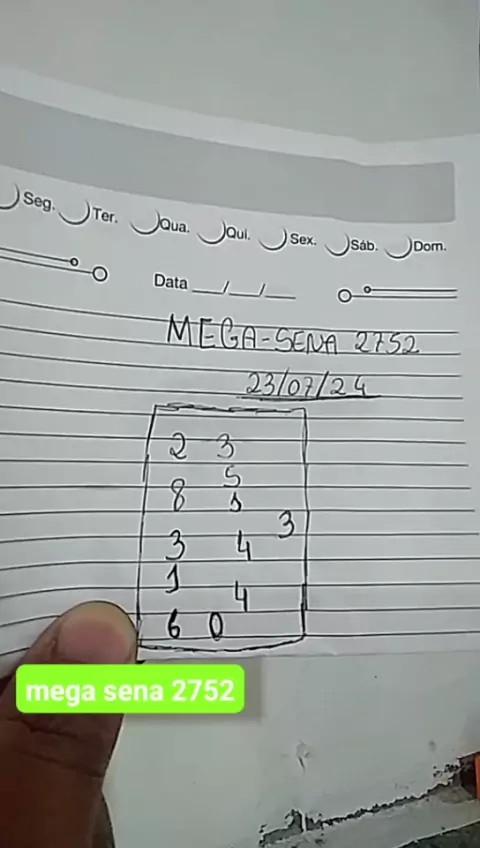 Seg. Ter. Qua. Qui. Sex. Sáb. Dom.
Data __/__/__
MEGA-SENA 2752
23/07/24
2 3
5
8 1
3
3 4
1
4
6 0
mega sena 2752